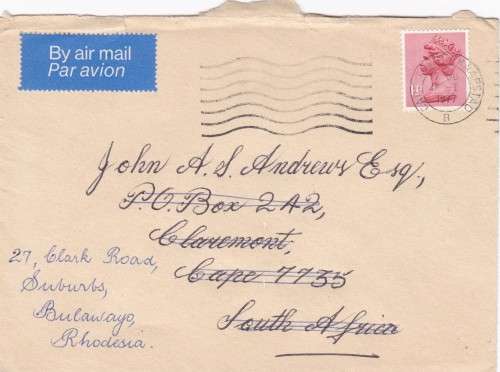 By air mail
Par avion
1977
B
John A. S. Andrews Esq.,
P.O. Box 2A2,
Claremont,
Cape 7735
South Africa
27, Clark Road,
Suburbs,
Bulawayo,
Rhodesia.